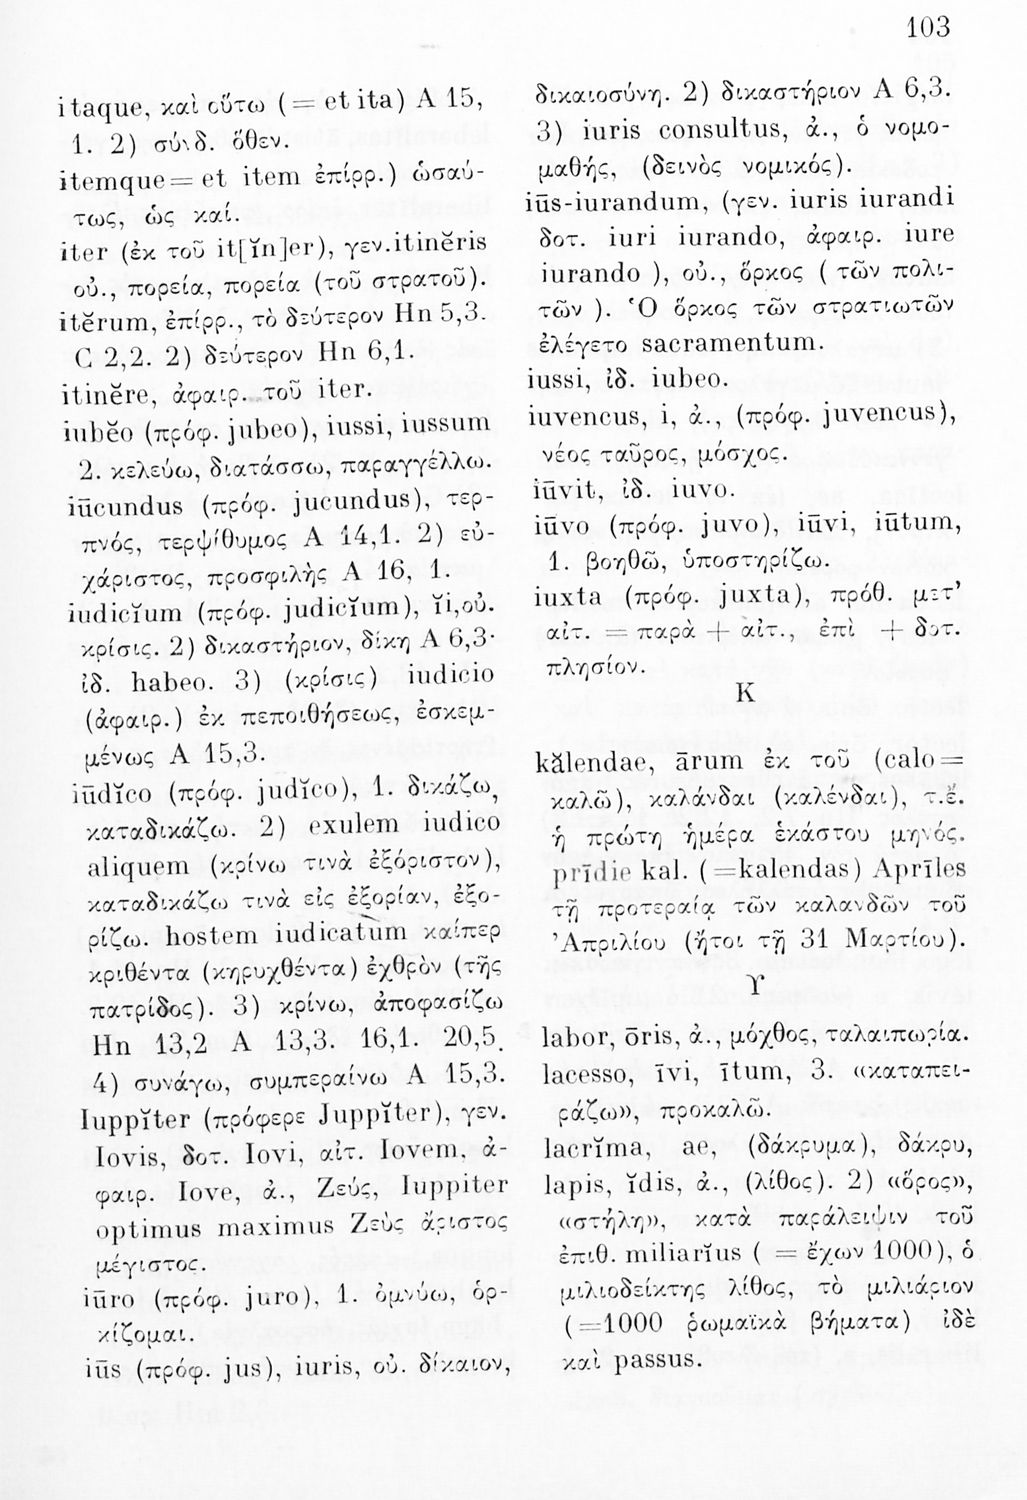 103
itaque, καὶ οὕτω (= et ita) A 15,
1. 2) σύνδ. ὅθεν.
itemque = et item ἐπίρρ.) ὡσαύ-
τως, ὡς καί.
iter (ἐκ τοῦ it[ĭn]er), γεν. itinĕris
οὐ., πορεία, πορεία (τοῦ στρατοῦ).
itĕrum, ἐπίρρ., τὸ δεύτερον Hn 5,3.
C 2,2. 2) δεύτερον Hn 6,1.
itinĕre, ἀφαιρ. τοῦ iter.
iubĕo (πρόφ. jubeo), iussi, iussum
2. κελεύω, διατάσσω, παραγγέλλω.
iūcundus (πρόφ. jucundus), τερ-
πνός, τερψίθυμος A 14,1. 2) εὐ-
χάριστος, προσφιλὴς A 16, 1.
iudicĭum (πρόφ. judicĭum), ĭi, οὐ.
κρίσις. 2) δικαστήριον, δίκη A 6,3·
ἰδ. habeo. 3) (κρίσις) iudicio
(ἀφαιρ.) ἐκ πεποιθήσεως, ἐσκεμ-
μένως A 15,3.
iūdĭco (πρόφ. judĭco), 1. δικάζω,
καταδικάζω. 2) exulem iudico
aliquem (κρίνω τινὰ ἐξόριστον),
καταδικάζω τινὰ εἰς ἐξορίαν, ἐξο-
ρίζω. hostem iudicatum καίπερ
κριθέντα (κηρυχθέντα) ἐχθρὸν (τῆς
πατρίδος). 3) κρίνω, ἀποφασίζω
Hn 13,2 A 13,3. 16,1. 20,5.
4) συνάγω, συμπεραίνω A 15,3.
Iuppĭter (πρόφερε Juppĭter), γεν.
Iovis, δοτ. Iovi, αἰτ. Iovem, ἀ-
φαιρ. Iove, ἀ., Ζεύς, Iuppiter
optimus maximus Ζεὺς ἄριστος
μέγιστος.
iūro (πρόφ. juro), 1. ὀμνύω, ὁρ-
κίζομαι.
iūs (πρόφ. jus), iuris, οὐ. δίκαιον,
δικαιοσύνη. 2) δικαστήριον A 6,3.
3) iuris consultus, ἀ., ὁ νομο-
μαθής, (δεινὸς νομικός).
iūs-iurandum, (γεν. iuris iurandi
δοτ. iuri iurando, ἀφαιρ. iure
iurando ), οὐ., ὅρκος ( τῶν πολι-
τῶν ). Ὁ ὅρκος τῶν στρατιωτῶν
ἐλέγετο sacramentum.
iussi, ἰδ. iubeo.
iuvencus, i, ἀ., (πρόφ. juvencus),
νέος ταῦρος, μόσχος.
iūvit, ἰδ. iuvo.
iūvo (πρόφ. juvo), iūvi, iūtum,
1. βοηθῶ, ὑποστηρίζω.
iuxta (πρόφ. juxta), πρόθ. μετ'
αἰτ. = παρὰ + αἰτ., ἐπὶ + δοτ.
πλησίον.
K
kălendae, ārum ἐκ τοῦ (calo =
καλῶ), καλάνδαι (καλένδαι), τ.ἔ.
ἡ πρώτη ἡμέρα ἑκάστου μηνός.
prīdie kal. (=kalendas) Aprīles
τῇ προτεραίᾳ τῶν καλανδῶν τοῦ
Ἀπριλίου (ἤτοι τῇ 31 Μαρτίου).
ϒ
labor, ōris, ἀ., μόχθος, ταλαιπωρία.
lacesso, īvi, ītum, 3. «καταπει-
ράζω», προκαλῶ.
lacrĭma, ae, (δάκρυμα), δάκρυ,
lapis, ĭdis, ἀ., (λίθος). 2) «ὅρος»,
«στήλη», κατὰ παράλειψιν τοῦ
ἐπιθ. miliarĭus ( = ἔχων 1000), ὁ
μιλιοδείκτης λίθος, τὸ μιλιάριον
(=1000 ῥωμαϊκὰ βήματα) ἰδὲ
καὶ passus.